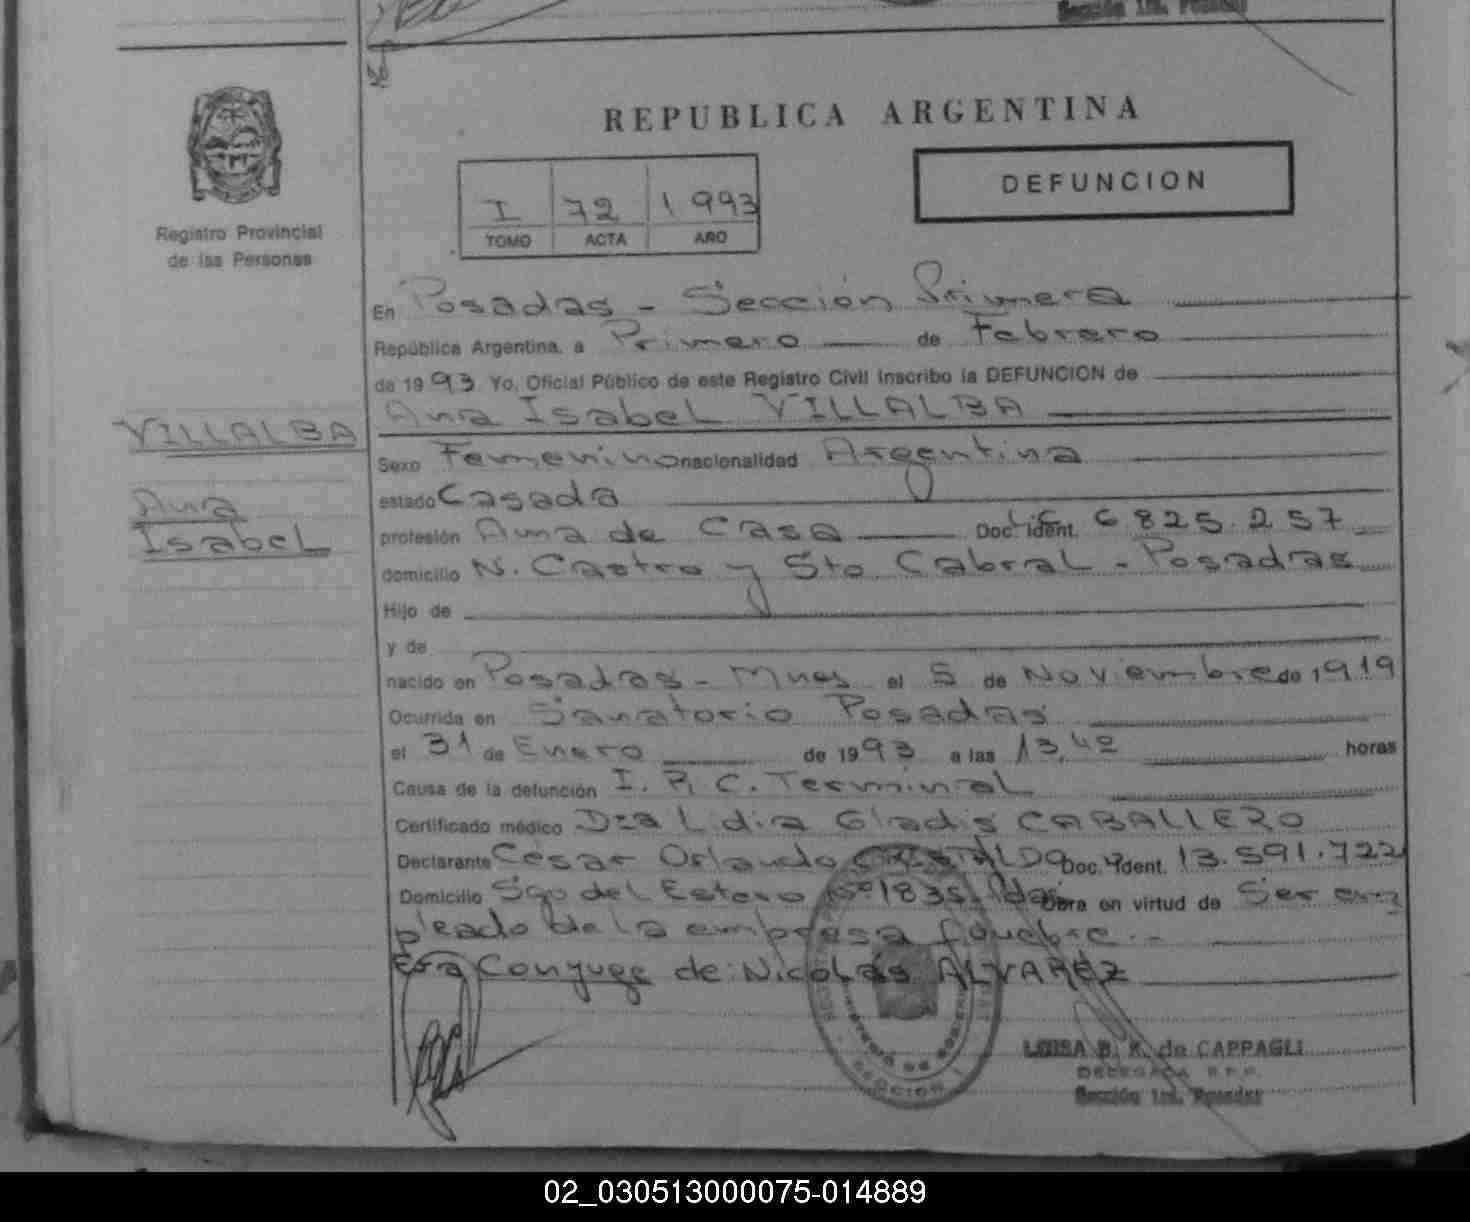 Sección 1ra. Posadas
REPUBLICA ARGENTINA
DEFUNCION
I 72 1993
TOMO ACTA AÑO
Registro Provincial
de las Personas
En Posadas - Sección Primera
República Argentina, a Primero de Febrero
de 1993 Yo, Oficial Público de este Registro Civil inscribo la DEFUNCION de
Ana Isabel VILLALBA
VILLALBA
Ana
Isabel
Sexo Femenino nacionalidad Argentina
estado Casada
profesión Ama de Casa Doc. Ident. L.C. 6.825.257
domicilio N. Castro y Sto Cabral - Posadas
Hijo de
y de
nacido en Posadas - Mnes el 5 de Noviembre de 1919
Ocurrida en Sanatorio Posadas
el 31 de Enero de 1993 a las 13,40 horas
Causa de la defunción I. R. C. Terminal
Certificado médico Dra Lidia Gladis CABALLERO
Declarante César Orlando Doc. Ident. 13.591.722
Domicilio Sgo del Estero Nº 1835 - Pdas Obra en virtud de Ser em
pleado de la empresa fúnebre.-
Era Conyuge de: Nicolás ALVAREZ
LUISA B. K. de CAPPAGLI
DELEGADA R.P.P.
Sección 1ra. Posadas
SECCION 1
02_030513000075-014889